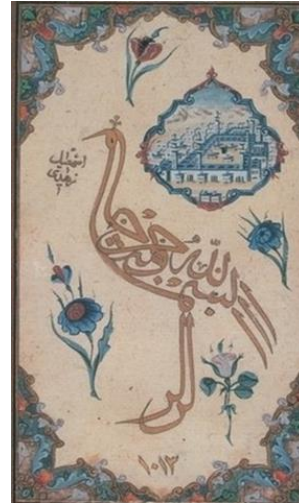 اسمعيل
زهدى
بسم الله الرحمن الرحيم
١٠١٣